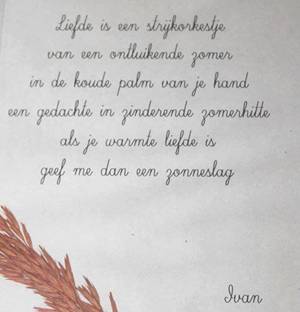 Liefde is een strijkorkestje
van een ontluikende zomer
in de koude palm van je hand
een gedachte in zinderende zomerhitte
als je warmte liefde is
geef me dan een zonneslag
Ivan